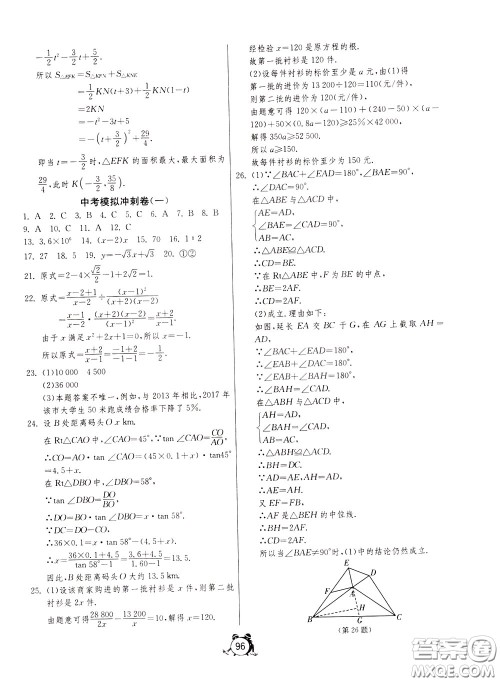 -1/2t²-3/2t+5/2.
所以 S△EFK=S△KFN+S△KNE
=1/2KN(t+3)+1/2KN(1-t)
=2KN
=-t²-3t+5
=-(t+3/2)²+29/4.
即当 t=-3/2时,△EFK 的面积最大,最大面积为
29/4,此时 K(-3/2,35/8).
中考模拟冲刺卷(一)
1. A 2. C 3. B 4. C 5. A 6. C 7. B 8. B
9. A 10. C 11. B 12. C
13. 3.6×10⁶ 14. (x-2)x 15. 70 16. 1 2
17. 27 18. 19. y=-√3x+√3 20. ①②
21. 原式=2-4×√2/2-1+2√2=1.
22. 原式=(x-2+1)/(x-2)÷(x-1)²/((x+2)(x-2))
=(x-1)/(x-2)·(x+2)(x-2)/(x-1)²=(x+2)/(x-1).
由于 x 满足 x²+2x+1=0,所以 x=-1.
所以原式=(x+2)/(x-1)=(-1+2)/(-1-1)=-1/2.
23. (1)10000 4 500
(2)36000
(3)本题答案不唯一,例如,与 2013 年相比,2017 年
该市大学生 50 米跑成绩合格率下降了 5%.
24. 设 B 处距离码头 O x km,
在 Rt△CAO 中,∠CAO=45°,∵tan ∠CAO=CO/AO,
∴CO=AO·tan ∠CAO=(45×0.1+x)·tan45°
=4.5+x.
在 Rt△DBO 中,∠DBO=58°,
∵tan ∠DBO=DO/BO,
∴DO=BO·tan ∠DBO=x·tan 58°.
∵DC=DO-CO,
∴36×0.1=x·tan 58°-(4.5+x).
∴x=(36×0.1+4.5)/(tan 58°-1)≈(3.6+4.5)/(1.60-1)=13.5.
因此,B 处距离码头 O 大约 13.5 km.
25. (1)设该商家购进的第一批衬衫是 x 件,则第二批
衬衫是 2x 件.
由题意可得28 800/2x-13 200/x=10,解得 x=120.
经检验 x=120 是原方程的根.
故第一批衬衫是 120 件.
(2)设每件衬衫的标价至少是 a 元,由(1)得
第一批的进价为 13 200÷120=110(元/件),
则第二批的进价为 120(元/件).
由题意可得 120×(a-110)+(240-50)×(a-
120)+50×(0.8a-120)≥25%×42 000,
解得 350a≥52 500.
所以 a≥150.
故每件衬衫的标价至少为 150 元.
26. (1)∵∠BAC+∠EAD=180°,∠BAC=90°,
∴∠DAC=90°.
在△ABE 与△ACD 中,
AE=AD,
∠BAE=∠CAD=90°,
AB=AC,
∴△ABE≌△ACD.
∴CD=BE.
∵在 Rt△ABE 中,F 为 BE 的中点,
∴BE=2AF.
∴CD=2AF.
(2)成立.理由如下:
如图,延长 EA 交 BC 于 G,在 AG 上截取 AH=
AD,
∵∠BAC+∠EAD=180°,
∴∠EAB+∠DAC=180°.
∵∠EAB+∠BAH=180°,
∴∠BAH=∠CAD.
在△ABH 与△ACD 中,
AH=AD,
∠BAH=∠CAD,
AB=AC,
∴△ABH≌△ACD.
∴BH=DC.
∵AD=AE,AH=AD,
∴AE=AH.
∵EF=FB,
∴AF 是△EBH 的中位线.
∴BH=2AF.
∴CD=2AF.
所以当∠BAE≠90°时,(1)中的结论仍然成立.
E
D
F
A
H
B
G
C
(第 26 题)
96